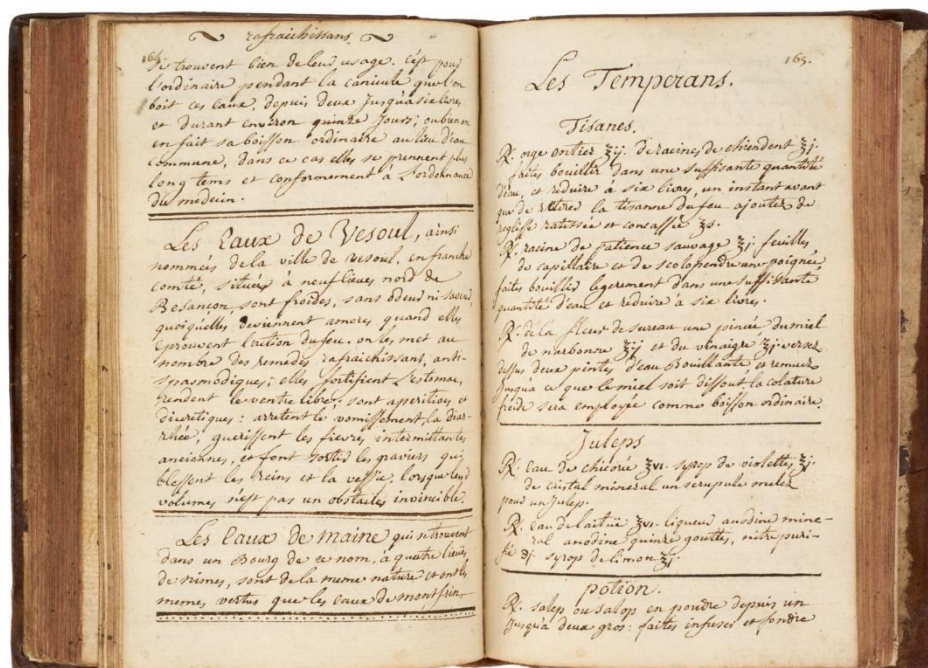 rafraichissans
164.
se trouvent bien de leur usage. c'est pour
l'ordinaire pendant la canicule que l'on
boit ces eaux, depuis deux jusqu'a six livres
et durant environ quinze jours; ou bien on
en fait sa boisson ordinaire au lieu d'eau
commune, dans ce cas elles se prennent plus
long tems et conformement à l'ordonnance
du medecin.
Les Eaux de Vesoul, ainsi
nommées de la ville de vesoul en franche
comté, situées à neuf lieues nord de
Besançon, sont froides, sans odeur ni saveur
quoiqu'elles deviennent ameres quand elles
eprouvent l'action du feu. on les met au
nombre des remedes rafraichissant, anti-
spasmodiques; elles fortifient l'estomac,
rendent le ventre libre: sont apperitives et
diuretiques: arretent le vomissement, la diar-
rhée, guerissent les fievres intermittantes
anciennes, et font sortir les graviers qui
blessent les reins et la vessie, lorsque leur
volumes n'est pas un obstacles invincible.
Les Eaux de maine qui se trouvent
dans un Bourg de ce nom, à quatre lieues
de nimes, sont de la meme nature et ont les
memes vertus que les eaux de montfrin.
165.
Les Tempérans.
Tisanes.
℞: orge entier ℥ij. de racines de chiendent ℥j.
faites bouillir dans une suffisante quantité
d'eau, et reduire à six livres, un instant avant
que de retirer la tisanne du feu ajoutez de
reglisse ratissée et concassée ʒs.
℞: racine de patience sauvage ℥j. feuilles
de capillaire et de scolopendre une poignée,
faites bouillir legerement dans une suffisante
quantité d'eau et reduire à six livres.
℞: de la fleur de sureau une pincée du miel
de narbonne ℥ij et du vinaigre ℥j. versez
dessus deux pintes d'eau Bouillante, et remuez
jusqu'a ce que le miel soit dissout. la colature
froide sera employée comme boisson ordinaire.
Juleps
℞: eau de chicorée ℥vi. syrop de violettes ℥j.
de cristal mineral un scrupule melez
pour un Julep.
℞: eau de laitue ℥vi. liqueur anodine mine-
ral anodine quinze gouttes, nitre puri-
fié ℈j. syrop de limon ℥j
potion.
℞. salep ou salop en poudre depuis un
jusqu'a deux gros: faites infuser et fondre